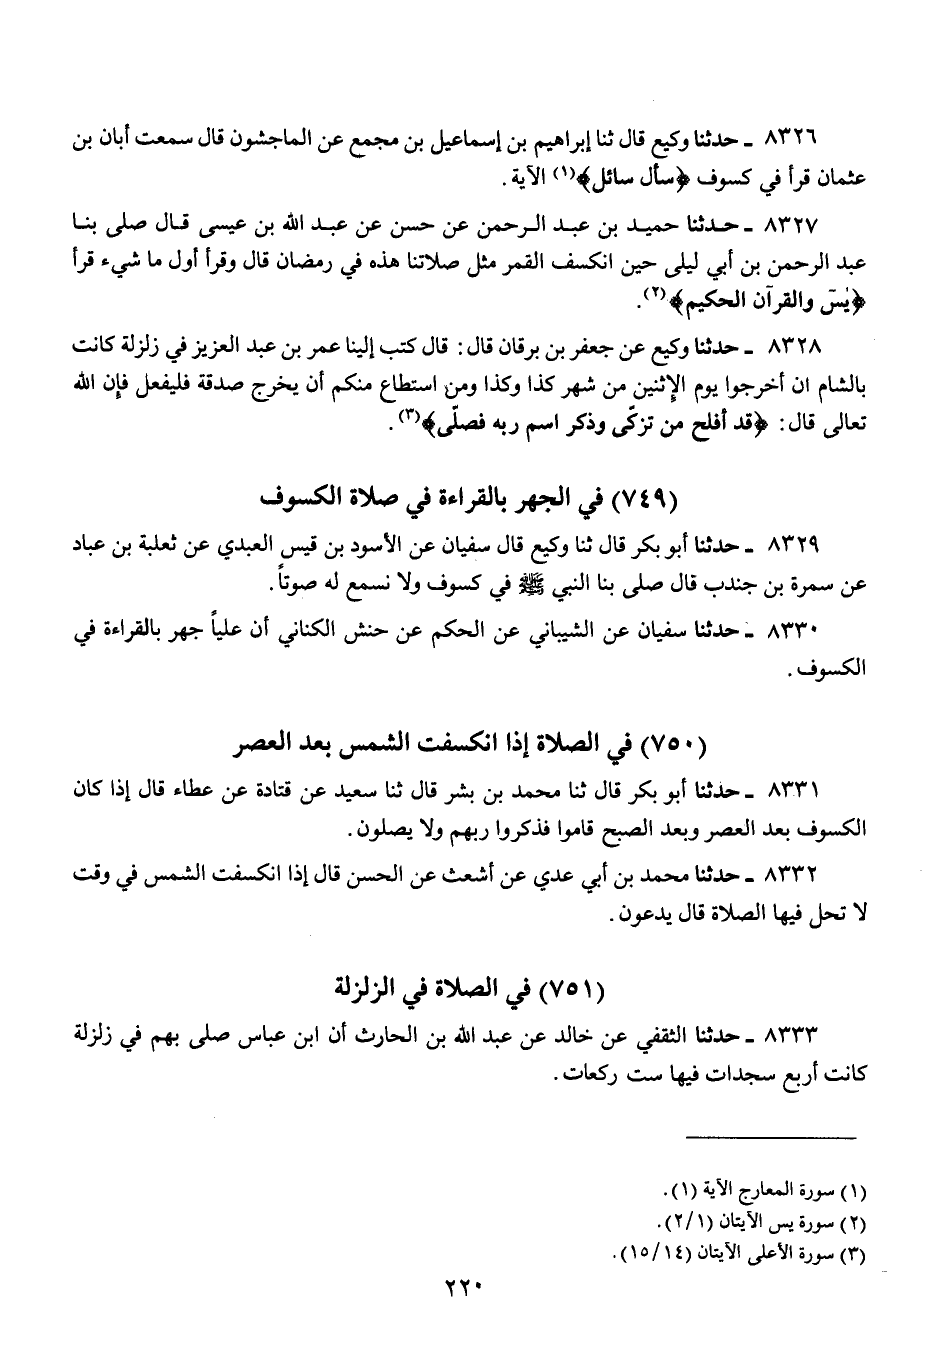 ٨٣٢٦ ـ حدثنا وكيع قال ثنا إبراهيم بن إسماعيل بن مجمع عن الماجشون قال سمعت أبان بن
عثمان قرأ في كسوف ﴿سأل سائل﴾(١) الآية.
٨٣٢٧ ـ حدثنا حميد بن عبد الرحمن عن حسن عن عبد الله بن عيسى قال صلى بنا
عبد الرحمن بن أبي ليلى حين انكسف القمر مثل صلاتنا هذه في رمضان قال وقرأ أول ما شيء قرأ
﴿يٰسٓ والقرآن الحكيم﴾(٢).
٨٣٢٨ ـ حدثنا وكيع عن جعفر بن برقان قال: قال كتب إلينا عمر بن عبد العزيز في زلزلة كانت
بالشام ان أخرجوا يوم الإثنين من شهر كذا وكذا ومن استطاع منكم أن يخرج صدقة فليفعل فإن الله
تعالى قال: ﴿قد أفلح من تزكّى وذكر اسم ربه فصلّى﴾(٣).
(٧٤٩) في الجهر بالقراءة في صلاة الكسوف
٨٣٢٩ ـ حدثنا أبو بكر قال ثنا وكيع قال سفيان عن الأسود بن قيس العبدي عن ثعلبة بن عباد
عن سمرة بن جندب قال صلى بنا النبي ﷺ في كسوف ولا نسمع له صوتاً.
٨٣٣٠ ـ حدثنا سفيان عن الشيباني عن الحكم عن حنش الكناني أن علياً جهر بالقراءة في
الكسوف.
(٧٥٠) في الصلاة إذا انكسفت الشمس بعد العصر
٨٣٣١ ـ حدثنا أبو بكر قال ثنا محمد بن بشر قال ثنا سعيد عن قتادة عن عطاء قال إذا كان
الكسوف بعد العصر وبعد الصبح قاموا فذكروا ربهم ولا يصلون.
٨٣٣٢ ـ حدثنا محمد بن أبي عدي عن أشعث عن الحسن قال إذا انكسفت الشمس في وقت
لا تحل فيها الصلاة قال يدعون.
(٧٥١) في الصلاة في الزلزلة
٨٣٣٣ ـ حدثنا الثقفي عن خالد عن عبد الله بن الحارث أن ابن عباس صلى بهم في زلزلة
كانت أربع سجدات فيها ست ركعات.
(١) سورة المعارج الآية (١).
(٢) سورة يس الآيتان (٢/١).
(٣) سورة الأعلى الآيتان (١٥/١٤).
٢٢٠